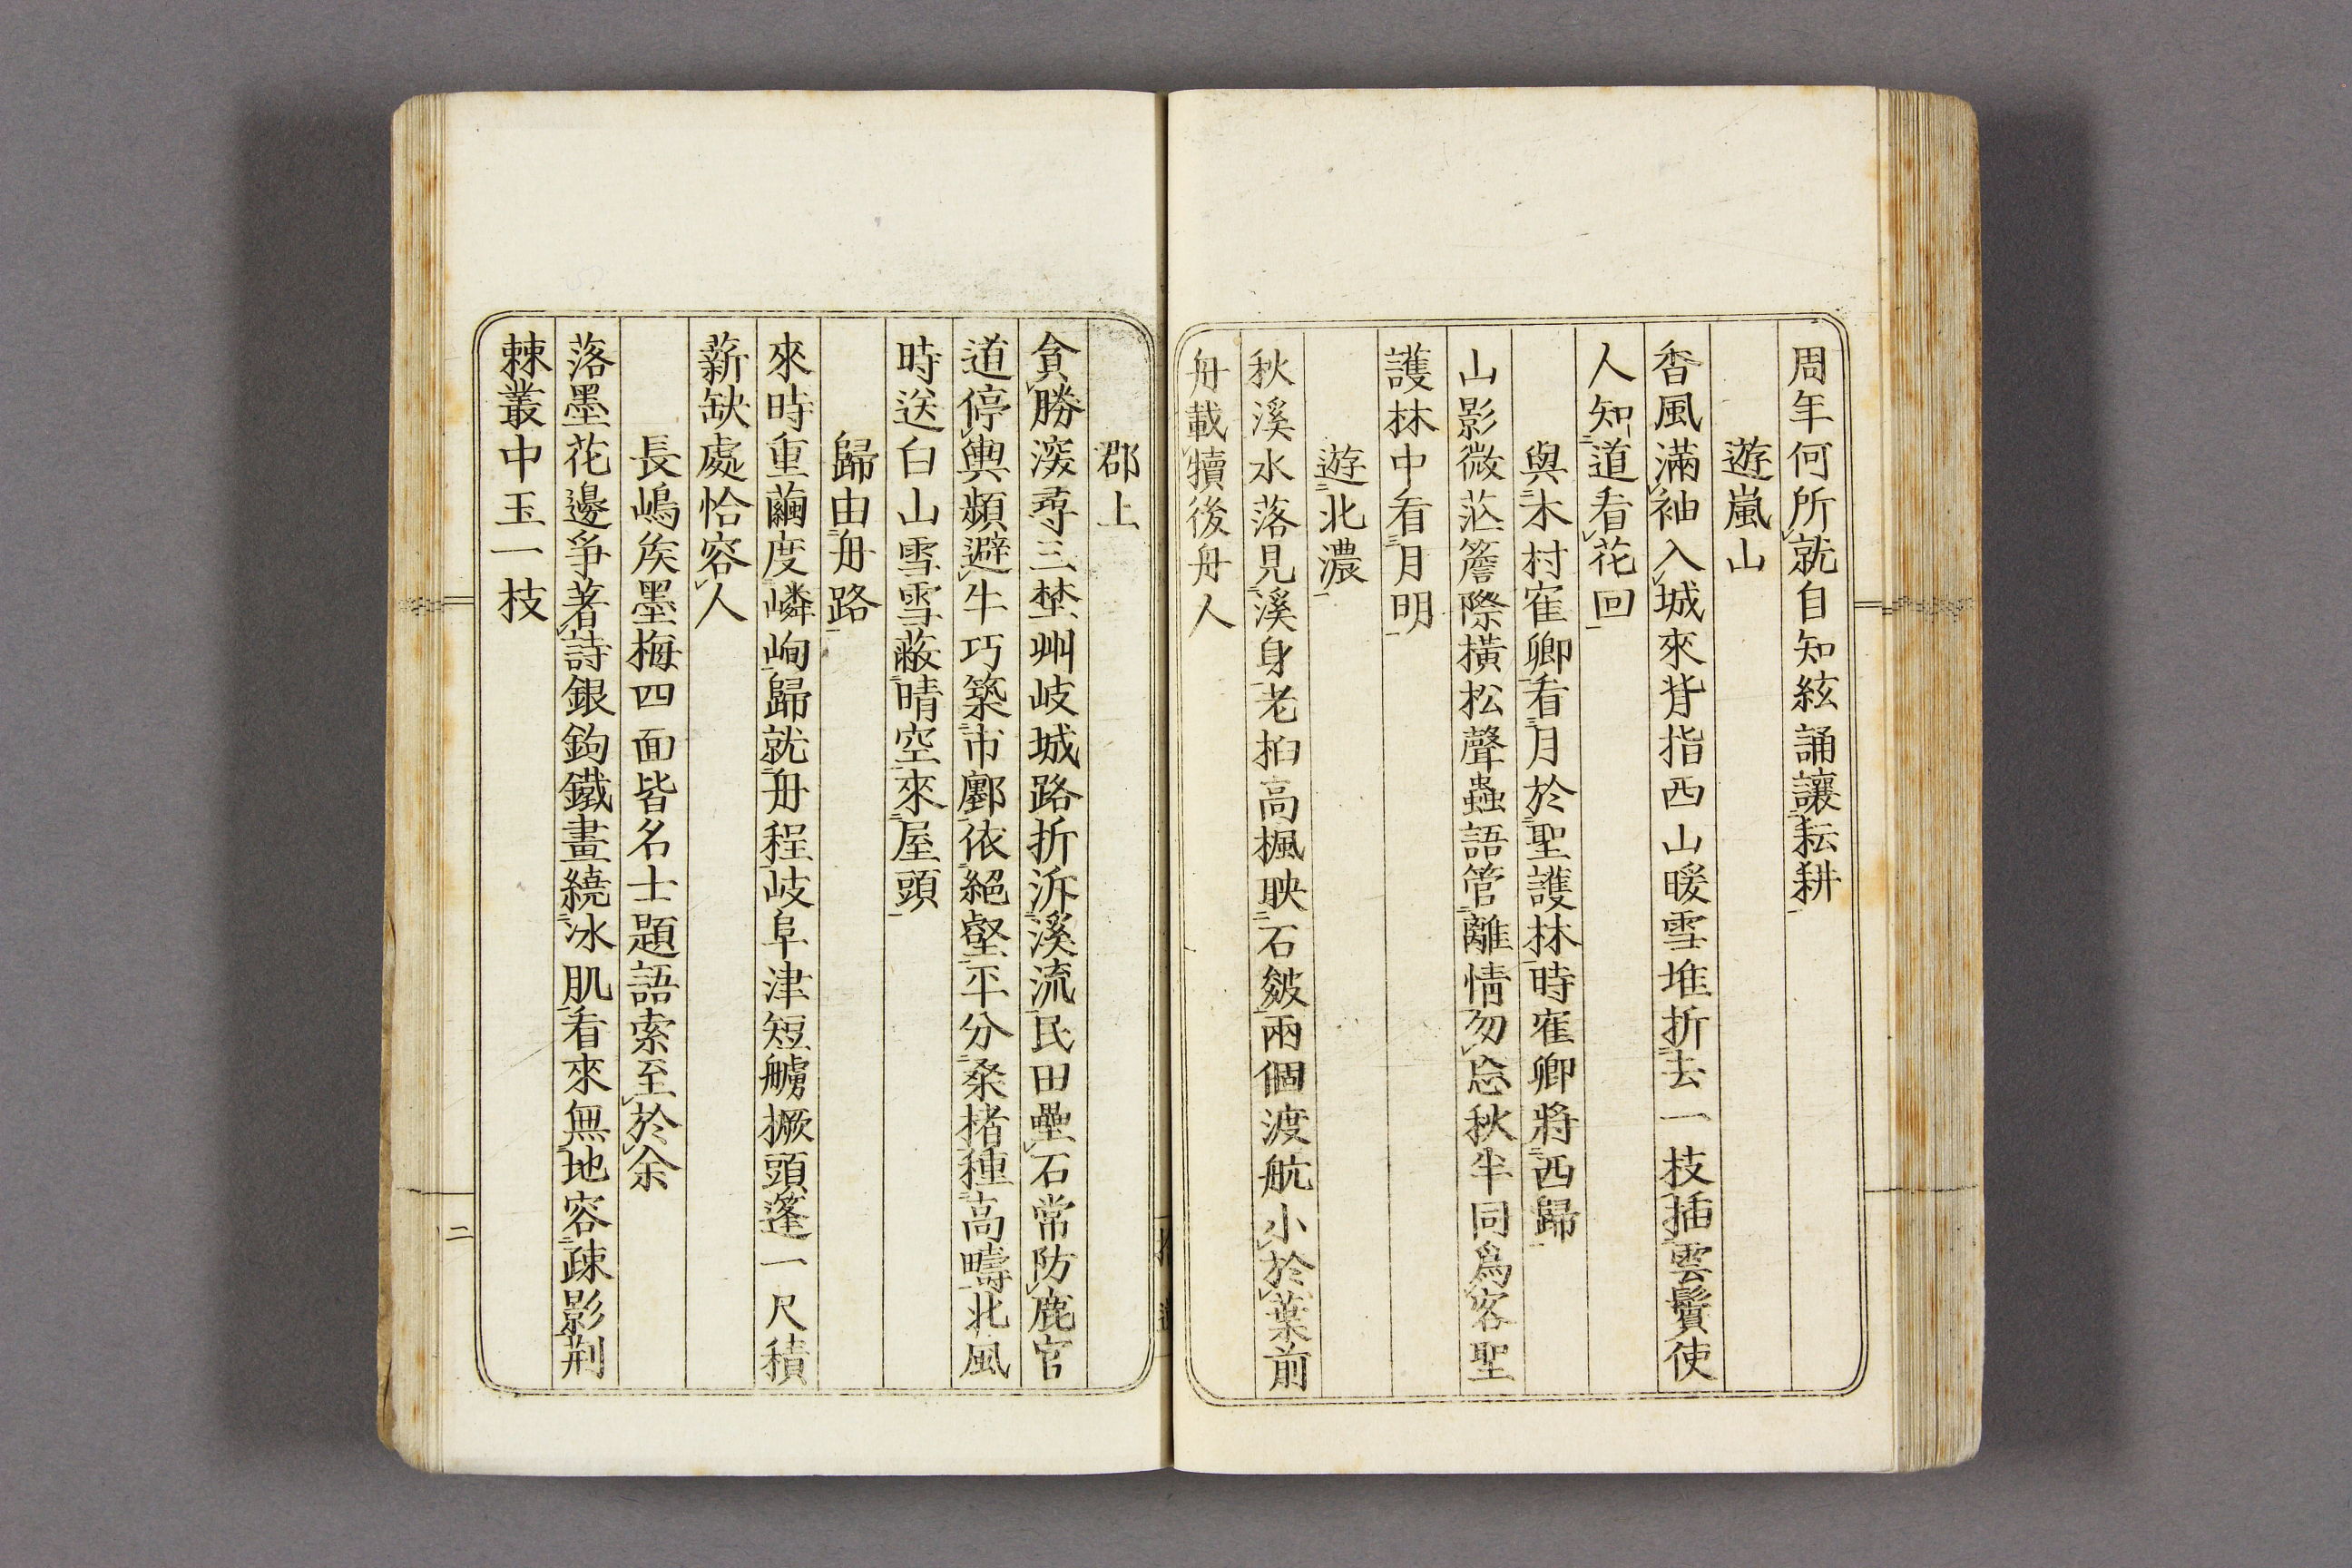 周年何所就自知絃誦讓耘耕
遊嵐山
香風滿袖入城來背指西山暖雪堆折去一枝插雲鬟使
人知道看花回
與木村寉卿看月於聖護林時寉卿將西歸
山影微茫簷際橫松聲蟲語管離情勿忘秋半同爲客聖
護林中看月明
遊北濃
秋溪水落見溪身老桕高楓映石皴兩個渡航小於葉前
舟載犢後舟人
郡上
貪勝深尋三埜州岐城路折泝溪流民田壘石常防鹿官
道停輿頻避牛巧築市鄽依絕壑平分桑楮種高疇北風
時送白山雪雪蔽晴空來屋頭
歸由舟路
來時重繭度嶙峋歸就舟程岐阜津短艣撅頭篷一尺積
薪缺處恰容人
長嶋矦墨梅四面皆名士題語索至於余
落墨花邊爭著詩銀鉤鐵畫繞冰肌看來無地容疎影荆
棘叢中玉一枝
二